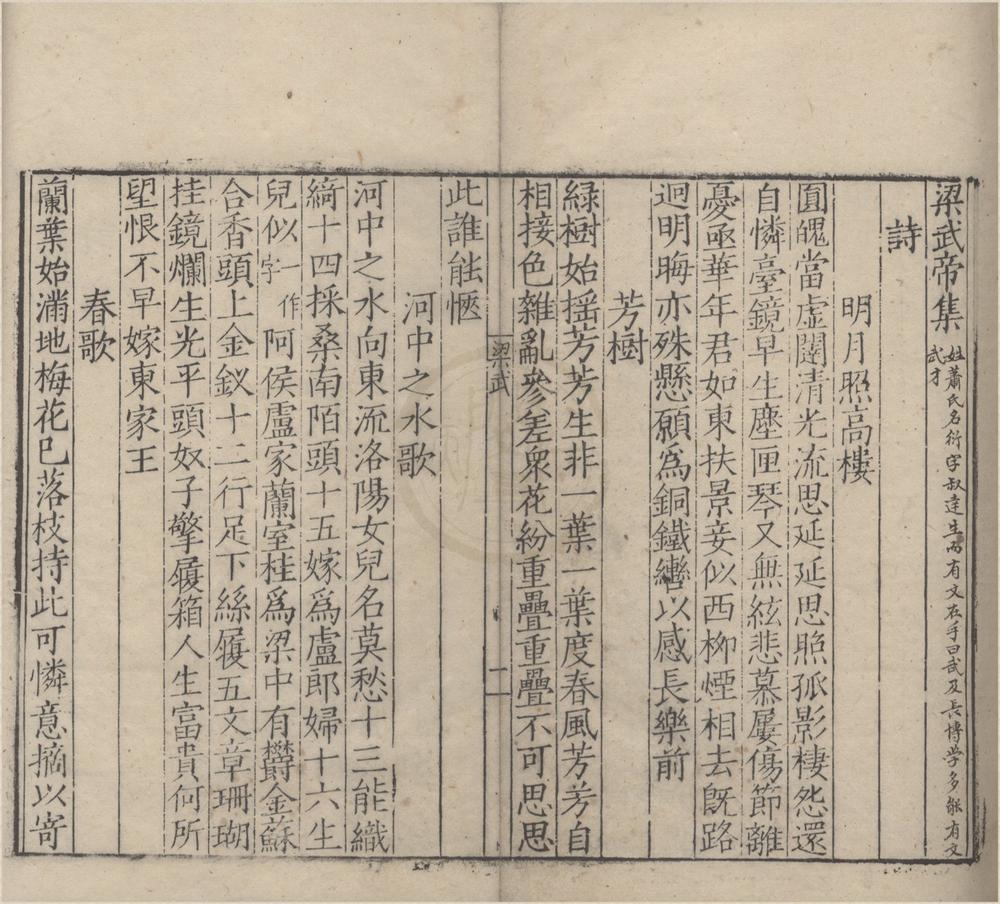 梁武帝集 姓蕭氏名衍字叔達生而有文在手曰武及長博学多能有文武才
詩
明月照高樓
圓魄當虛闥清光流思延延思照孤影棲怨還
自憐臺鏡早生塵匣琴又無絃悲慕屢傷節離
憂亟華年君如東扶景妾似西柳煙相去既路
迥明晦亦殊懸願為銅鐵轡以感長樂前
芳樹
綠樹始搖芳芳生非一葉一葉度春風芳芳自
相接色雜亂參差衆花紛重疊重疊不可思思
此誰能愜
梁武
一
河中之水歌
河中之水向東流洛陽女兒名莫愁十三能織
綺十四採桑南陌頭十五嫁為盧郎婦十六生
兒似一作字阿侯盧家蘭室桂為梁中有欝金蘇
合香頭上金釵十二行足下絲履五文章珊瑚
挂鏡爛生光平頭奴子擎履箱人生富貴何所
望恨不早嫁東家王
春歌
蘭葉始滿地梅花已落枝持此可憐意摘以寄